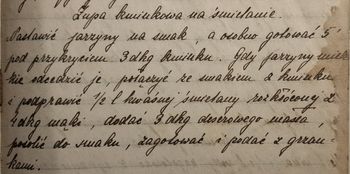 Zupa kminkowa na śmietanie.
Nastawić jarzyny na smak, a osobno gotować 5'
pod przykryciem 3 dkg kminku. Gdy jarzyny miek-
kie odcedzić je, połączyć ze smakiem z kminku
i podprawić 1/2 l kwaśnej śmietany rozkłóconej z
4 dkg mąki, dodać 3 dkg deserowego masła,
posolić do smaku, zagotować i podać z grzan-
kami.